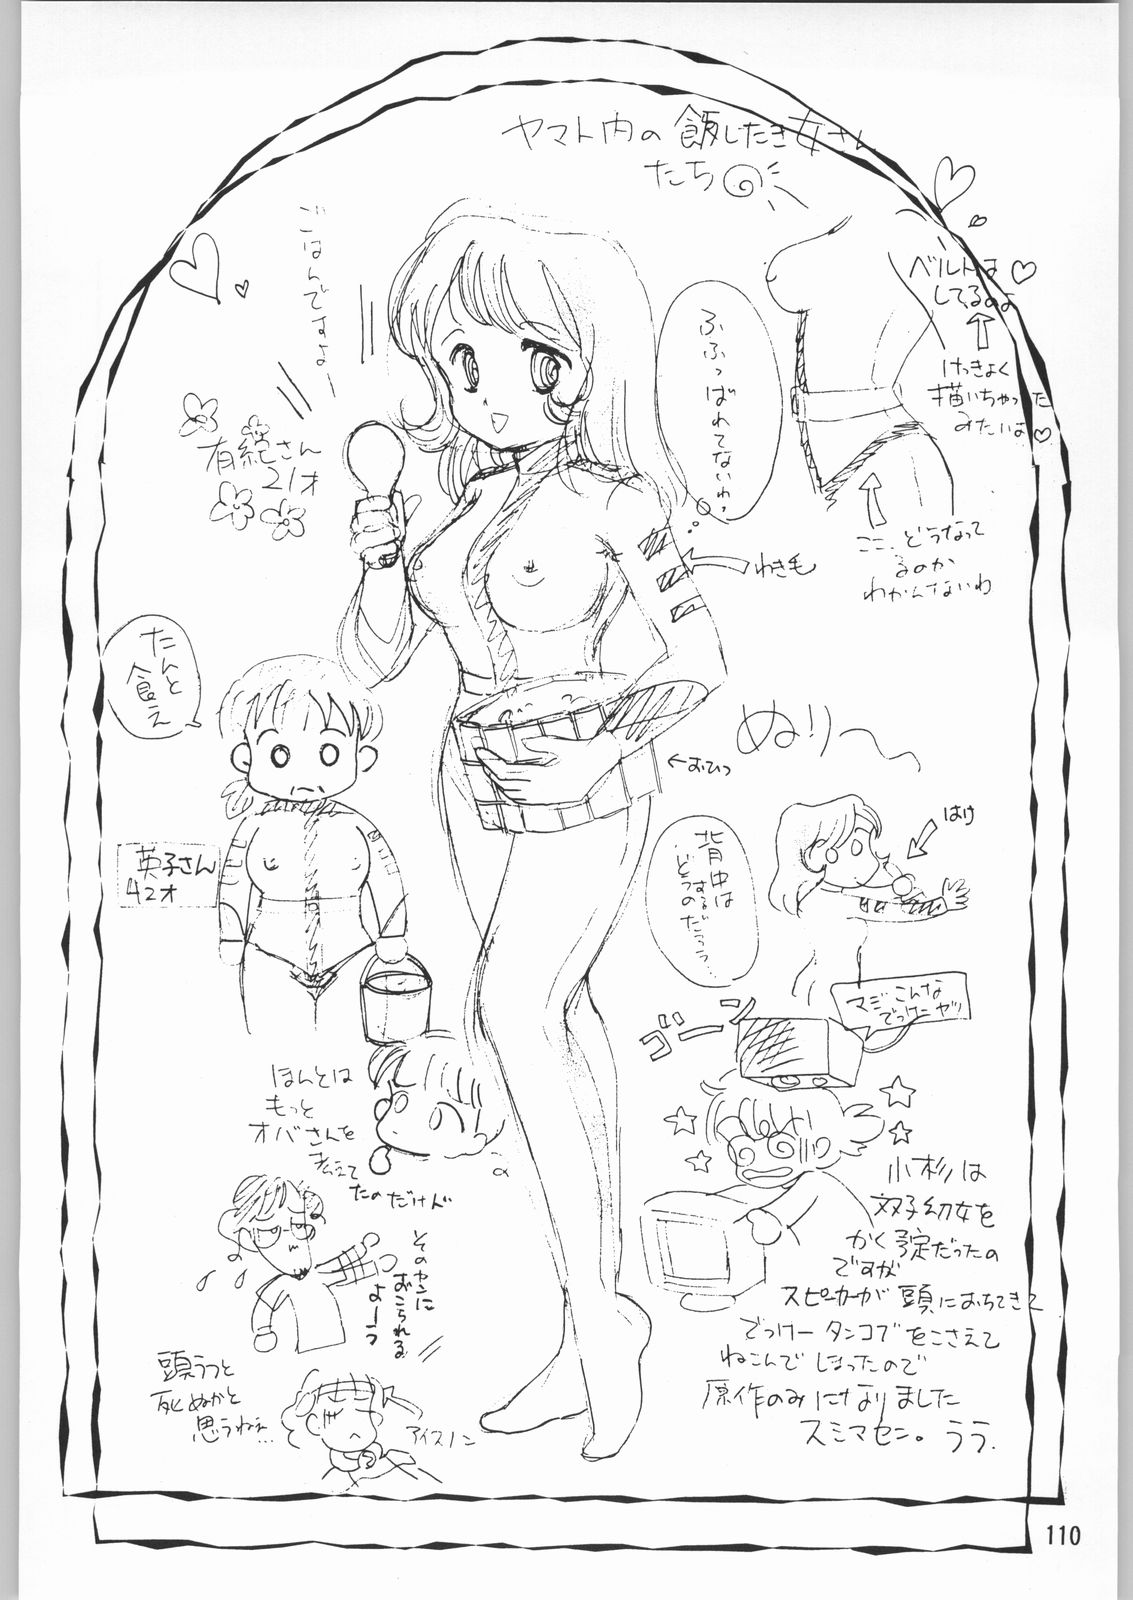 ヤマト内の飯したき女さん
たち
ごはんですよー
有紀さん
21才
ふふっばれてないわっ
ベルトは♡
してるのよ
けっきょく
描いちゃった
みたいよ♡
ここ、どうなって
るのか
わかんないわ
わき毛
たんと
食え
英子さん
42才
←おひつ
ぬり〜
はけ
背中は
どうするのだろう…
ゴーン
マジこんな
でっけーヤツ
ほんとは
もっと
オバさんを
考えて
たのだけど
そのヤンに
おこられる
よーっ
頭うつと
死ぬかと
思うねぇ…
アイスノン
小杉は
双子幼女を
かく予定だったの
ですが
スピーカーが頭におちてきて
でっけータンコブをこさえて
ねこんでしまったので
原作のみになりました
スミマセン。うう.
110